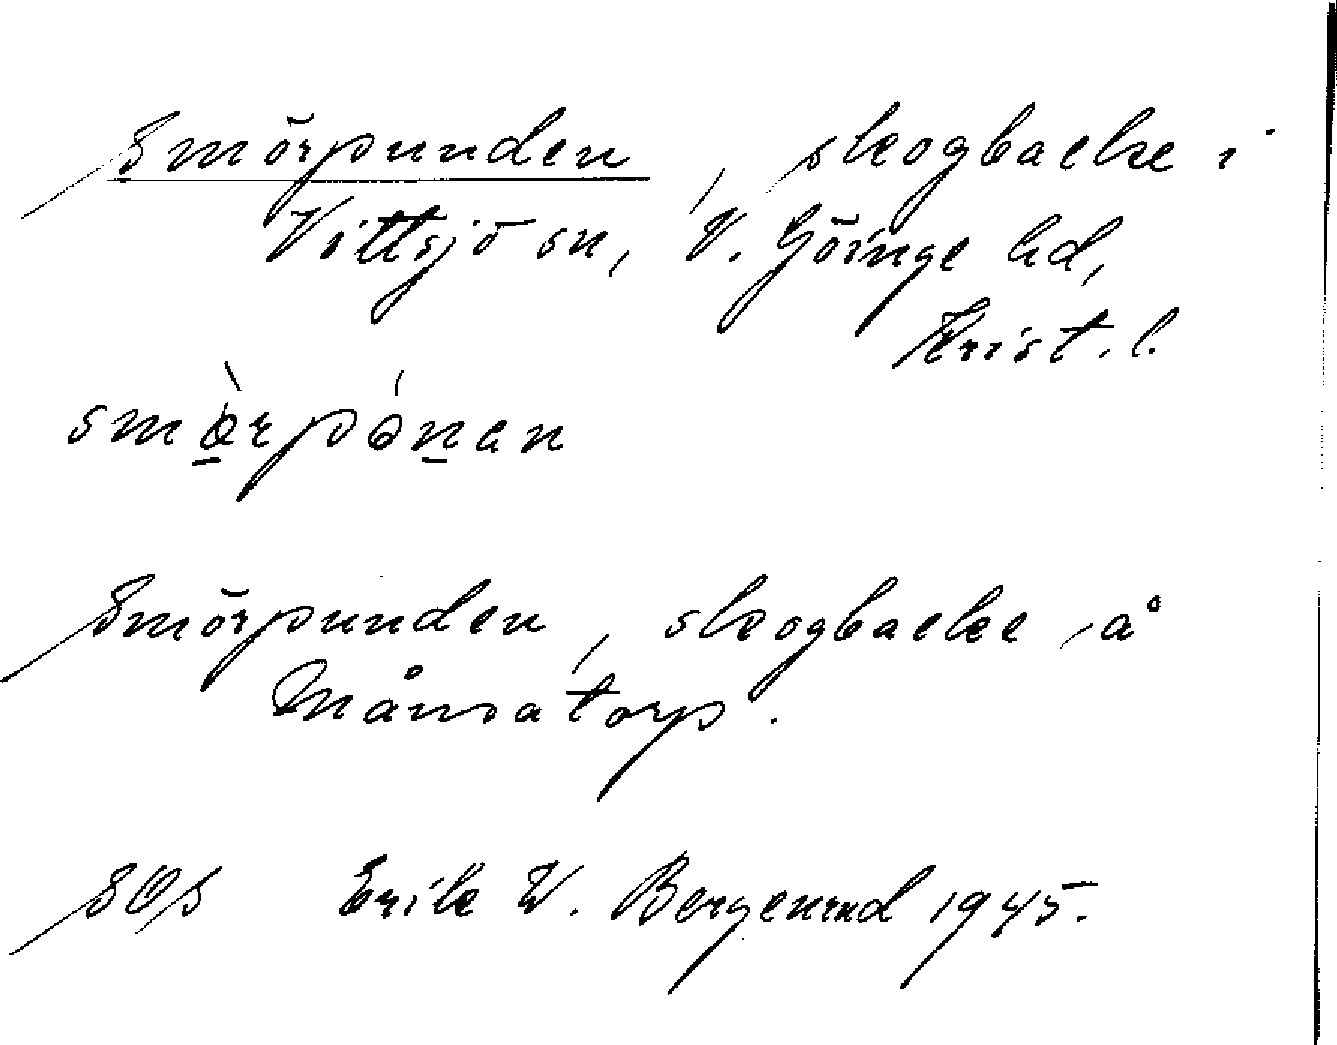 Smörpunden, skogbacke i
Vittsjö sn, V. Göinge hd,
Krist. l.
smö̀rpónan
Smörpunden, skogbacke å
Månsatorp.
SOS Erik W. Bergenrud 1945.